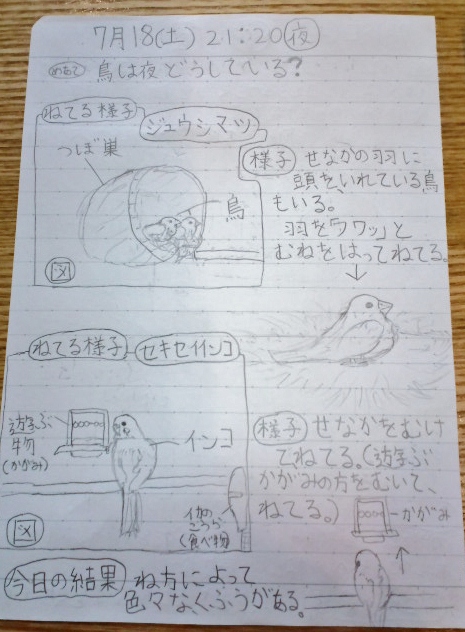 7月18(土) 21:20 夜
めあて 鳥は夜どうしている?
ねてる様子
ジュウシマツ
つぼ巣
鳥
図
様子 せなかの羽に
頭をいれている鳥
もいる。
羽を「フワッ」と
むねをはってねてる。
↓
ねてる様子
セキセイインコ
遊ぶ
物
(かがみ)
インコ
図
(食べ物)
様子 せなかをむけ
てねてる。(遊ぶ
かがみの方をむいて、
ねてる。)
かがみ
↑
今日の結果 ね方によって
色々なくふうがある。